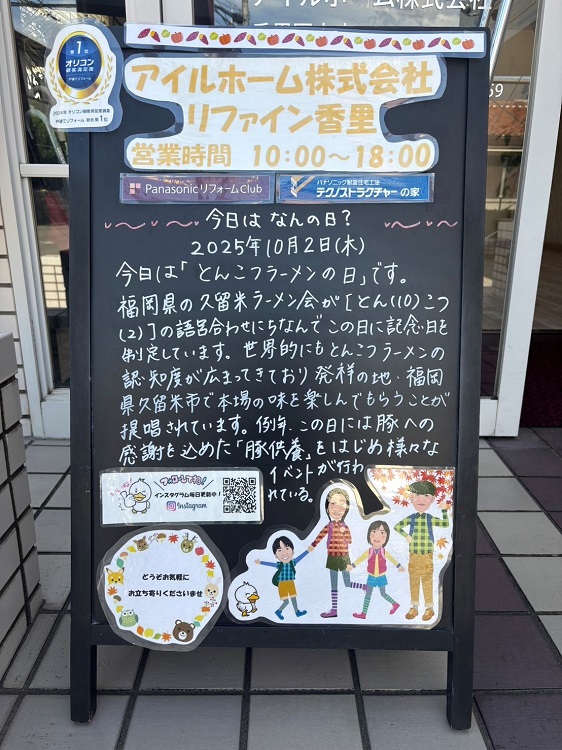 アイルホーム株式会社
第1位
オリコン
顧客満足度
戸建てリフォーム
2024年 オリコン顧客満足度調査
戸建てリフォーム 総合 第1位
アイルホーム株式会社
リファイン香里
営業時間 10:00～18:00
Panasonic リフォームClub
パナソニック耐震住宅工法
テクノストラクチャーの家
今日は なんの日?
2025年10月2日(木)
今日は「とんこつラーメンの日」です。
福岡県の久留米ラーメン会が[とん(10)こつ
(2)]の語呂合わせにちなんでこの日に記念日を
制定しています。世界的にもとんこつラーメンの
認知度が広まってきており発祥の地・福岡
県久留米市で本場の味を楽しんでもらうことが
提唱されています。例年、この日には豚への
感謝を込めた「豚供養」をはじめ様々な
イベントが行わ
れている。
フォローしてね!
インスタグラム毎日更新中!
Instagram
どうぞお気軽に
お立ち寄りくださいませ